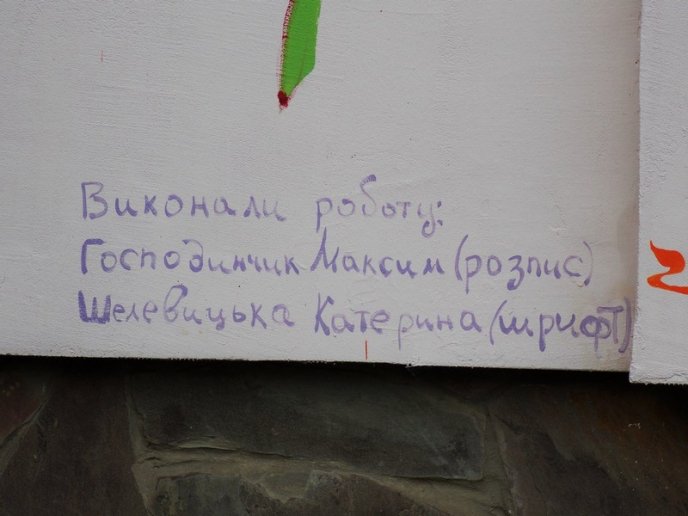 Виконали роботу:
Господинчик Максим (розпис)
Шелевицька Катерина (шрифт)